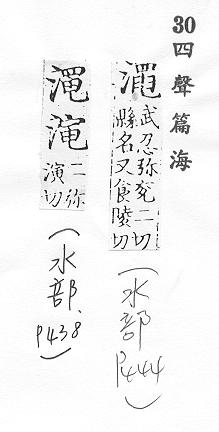 30 四聲篇海
澠 武忍弥兖二切
縣名又食陵切
(水部 P444)
二弥
演切
(水部、P438)